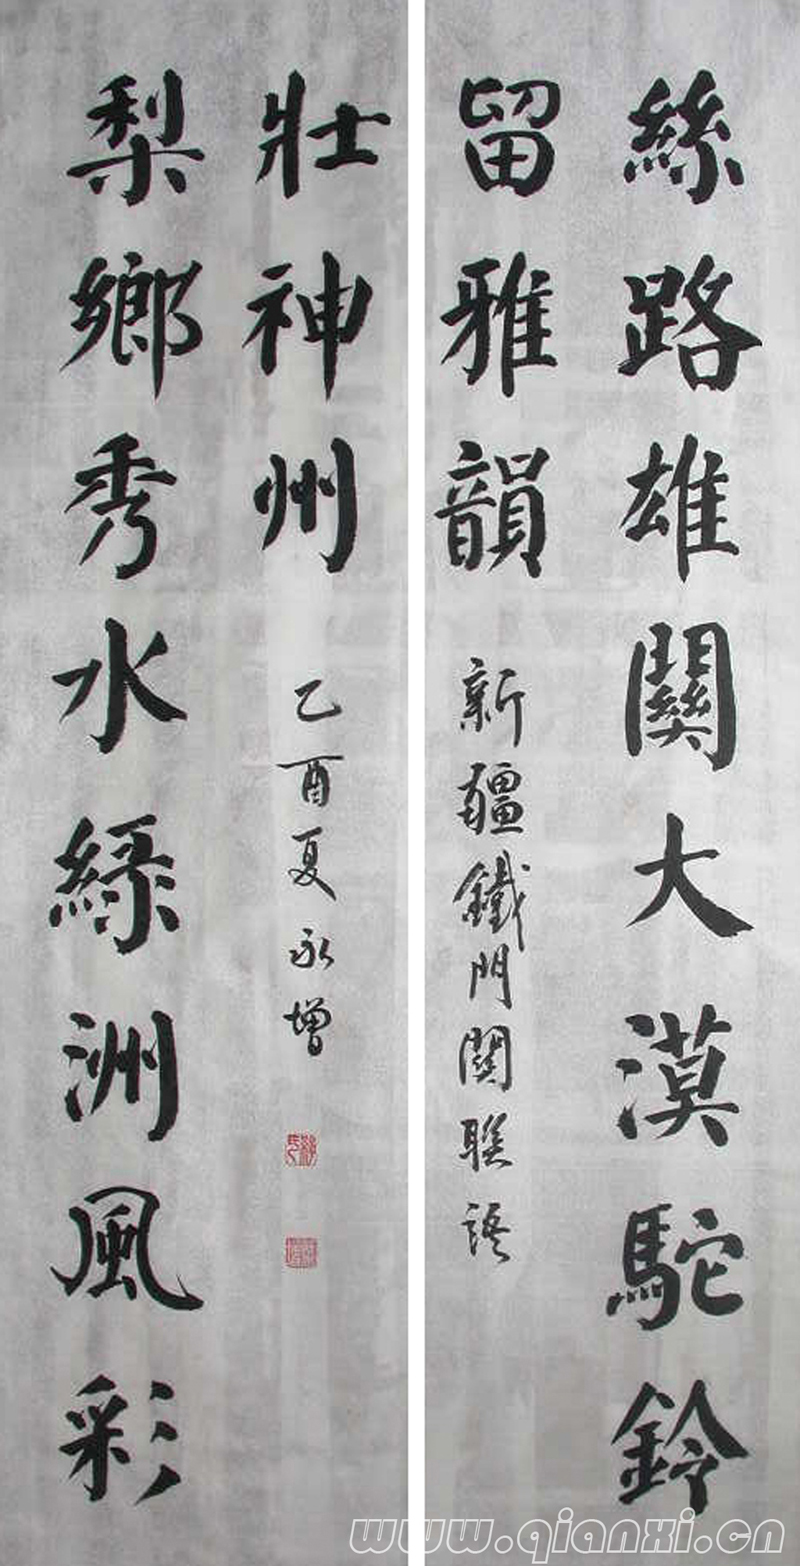 絲路雄關大漠駝鈴
留雅韻
新疆鐵門關聯語
梨鄉秀水綠洲風彩
壯神州
乙酉夏永增
www.qianxi.cn